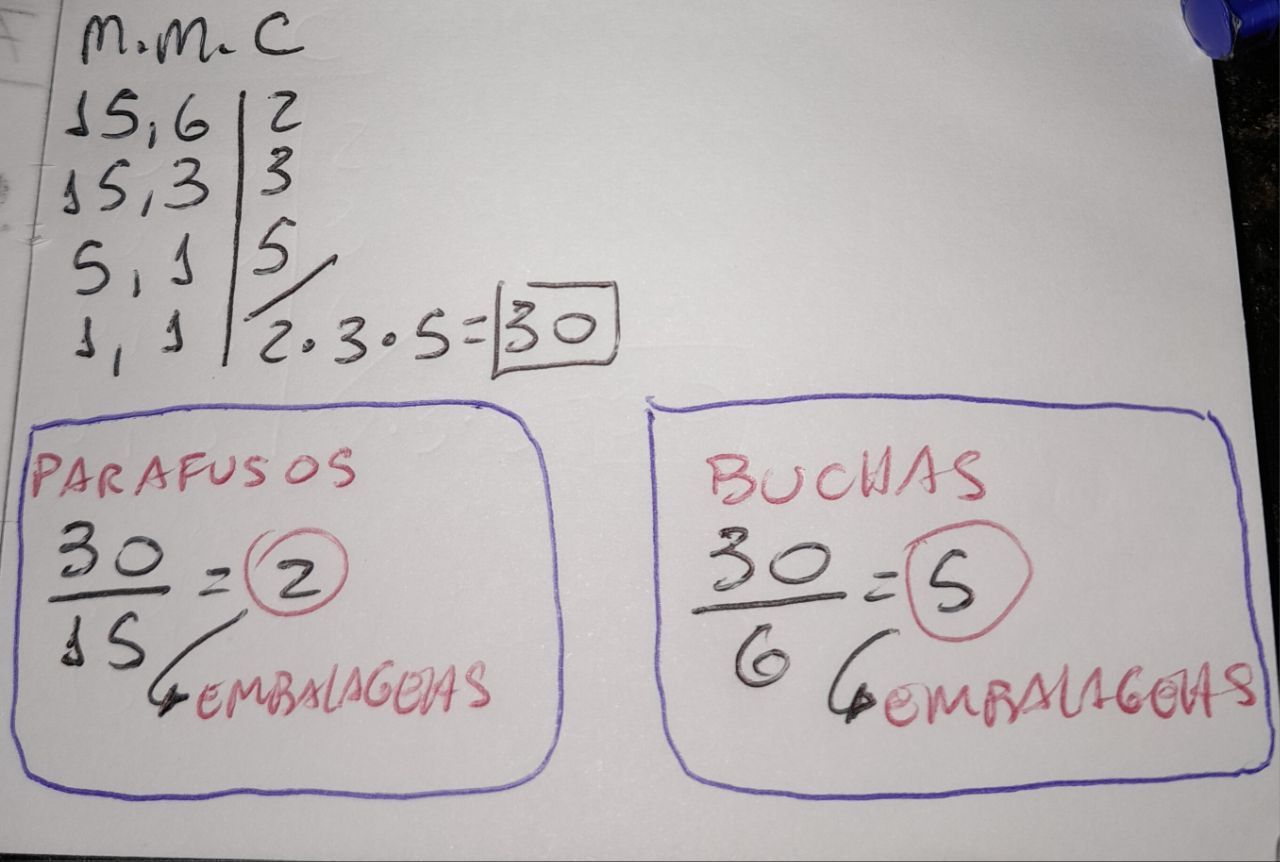 M.M.C
15,6 | 2
15,3 | 3
5,1 | 5
1,1 | 2·3·5=30
PARAFUSOS
30/15 = 2
EMBALAGENS
BUCHAS
30/6 = 5
EMBALAGENS